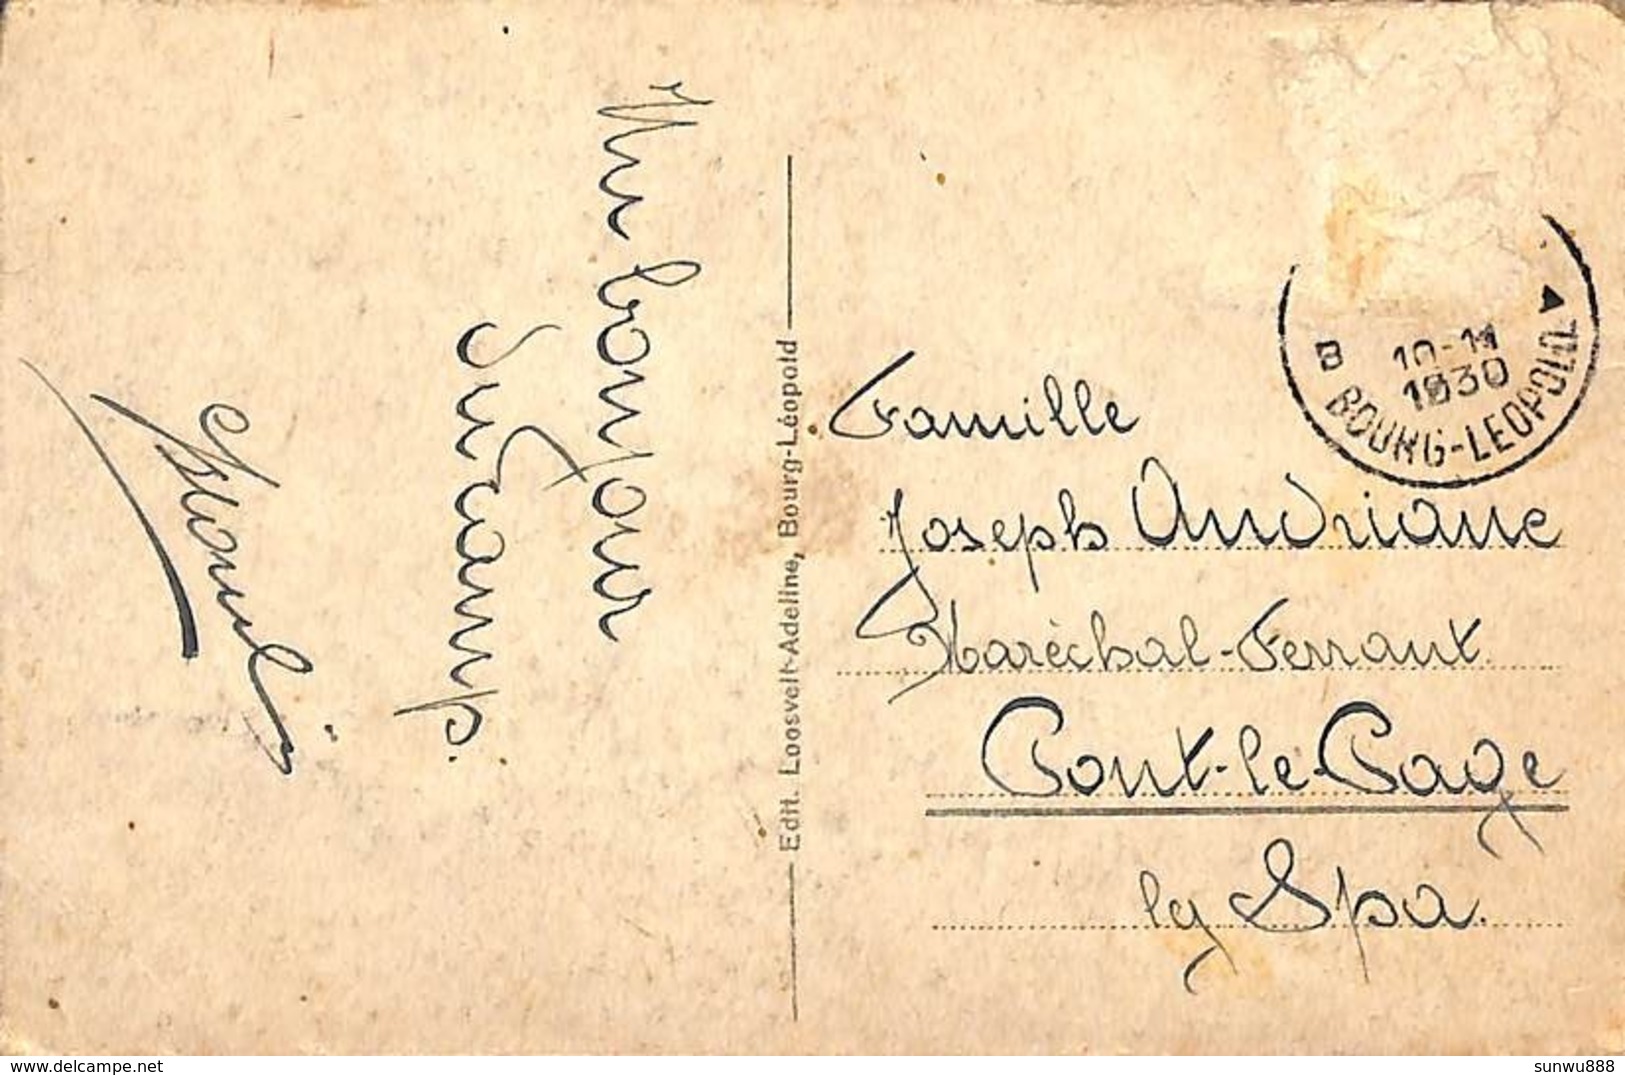 Un bonjour
du Camp.
Edit. Loosvelt-Adeline, Bourg-Léopold
B 10-11
1930
BOURG-LEOPOLD
Famille
Joseph Andrianne
Maréchal-Ferrant
Pont-le-Page
lez Spa.
delcampe.net
sunwu888